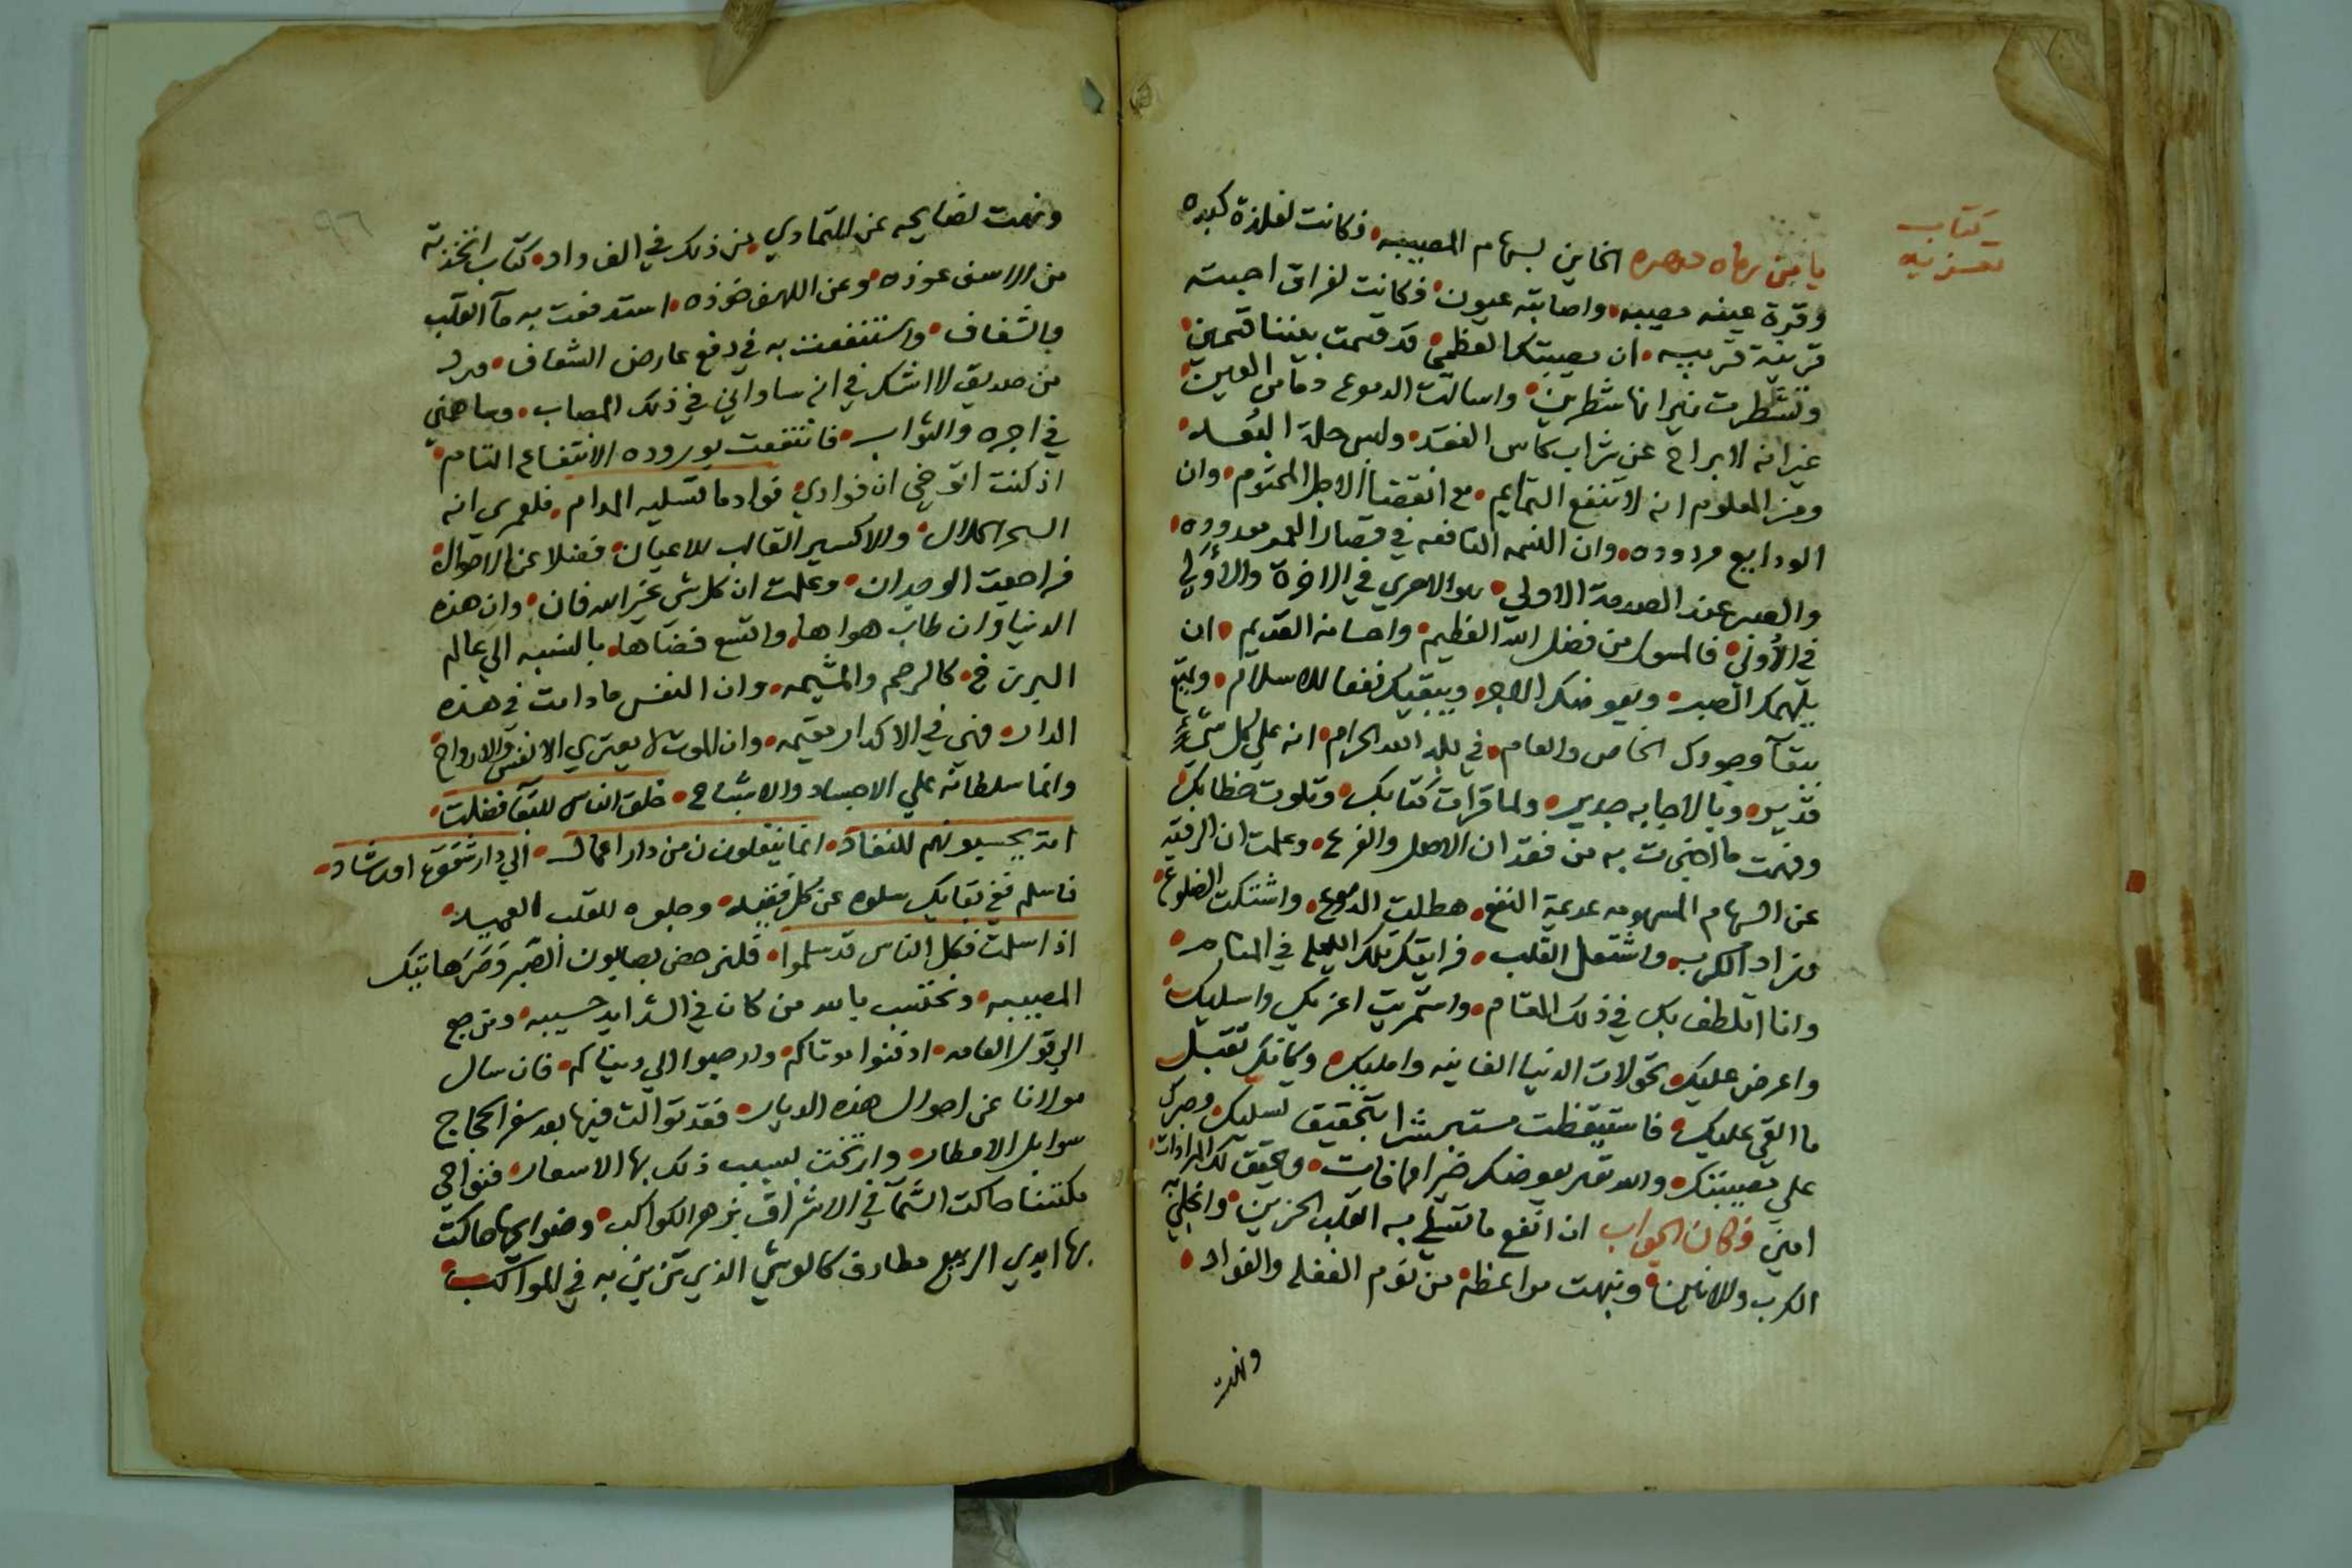 كتاب
تعزيه
يا من رماه دهره الخاين بسهام المصيبه • فكانت لفلذة كبده
وقرة عينه مصيبه • واصابته عيون • فكانت لفراق احبته
قريبة قريبه • ان مصيبتكم العظمى • قد قسمت بيننا قسمين •
وتشطرت نيرانها شطرين • واسالت الدموع دما من العين •
غير انه لا براح عن شراب كاس الفقد • ولبس حلة البعد •
ومن المعلوم انه لا تنفع التمايم • مع انقضا الاجل المحتوم • وان
الودايع مردوده • وان النسمه النافعه في قصار العمر معدوده •
والصبر عند الصدمة الاولي • هو الاحري في الاخرة والاولي
في الأولى • فالمسول من فضل الله العظيم • واحسانه القديم • ان
يلهمكم الصبر • ويعوضكم الاجر • ويبقيك نفعا للاسلام • ويمتع
ببقآ وجودك الخاص والعام • في بلد الله الحرام • انه علي كل شيء
قدير • وبالاجابه جدير • ولما قرات كتابك • وتلوت خطابك •
وفهمت ما اخبرت به من فقدان الاصل والفرع • وعلمت ان الرقيه
عن السهام المسمومه عديمة النفع • هطلت الدموع • واشتكت الضلوع •
وزاد الكرب • واشتعل القلب • فرايتك تلك الليله في المنام •
وانا اتلطف بك في ذلك المقام • واستمريت اعزيك واسليك •
واعرض عليك تحولات الدنيا الفانيه واملیك • وكانك تقبل
ما القي عليك • فاستيقظت مستبشرا بتحقيق تسليك • وصبرك
علي مصيبتك • والله تعه يعوضك خيرا مما فات • ويحقق لك المرادات •
امين فكان الجواب ان انفع ما تسلي به القلب الحزين • وانجلي به
الكرب والانين • ونبهت مواعظه • من نوم الغفله والفواد •
ونهت
ونهت نصايحه عن التمادي • من ذلك في الفواد • كتاب اتخذته
من الاسف عوذه • وعن اللهف خوذه • استدفعت به مآ القلب
والشغاف • واستنفعت به في دفع عارض الشعاف • ورد
من صديق لا اشك في انه ساواني في ذلك المصاب • وساهمني
في اجره والثواب • فانتفعت بوروده الانتفاع التام •
اذ كنت اتوخي ان فوادي • فواد ما تسليه المدام • فلعمري انه
السحر الحلال • والاكسير القالب للاعيان • فضلا عن الاحوال •
فراجعت الوجدان • وعلمت ان كل شي غير الله فان • وان هذه
الدنيا وان طاب هواها • واتسع فضآها • بالنسبه الي عالم
البرزخ • كالرحم والمشيمه • وان النفس ما دامت في هذه
الدار • فهي في الاكدار مقيمه • وان الموت لا يعتري الانفس والارواح •
وانما سلطانه علي الاجساد والاشباح • خلق الناس للبقآ فضلت •
امة يحسبونهم للنفاد • انما ينقلون من دار اعمال • الي دار شقوة او رشاد •
فاسلم ففي بقايك سلوه عن كل فقيد • وجلوه للقلب العميد •
اذا سلمت فكل الناس قد سلموا • فلنرحض بصابون الصبر وضر هاتيك
المصيبه • ونحتسب بالله من كان في الشدايد حسيبه • ونرجع
الي قول العامه • ادفنوا موتاكم • وارجعوا الي دنياكم • فان سال
مولانا عن احوال هذه الديار • فقد توالت فيها بعد سفر الحجاج
سوابل الامطار • وارتخت بسبب ذلك بها الاسعار • فنواحي
مكتنا حاكت السمآ في الاشراق بزهر الكواكب • وضواحيها حاكت
بها ايدي الربيع مطارف كالوشي الذي تزين به في المواكب •
٩٦